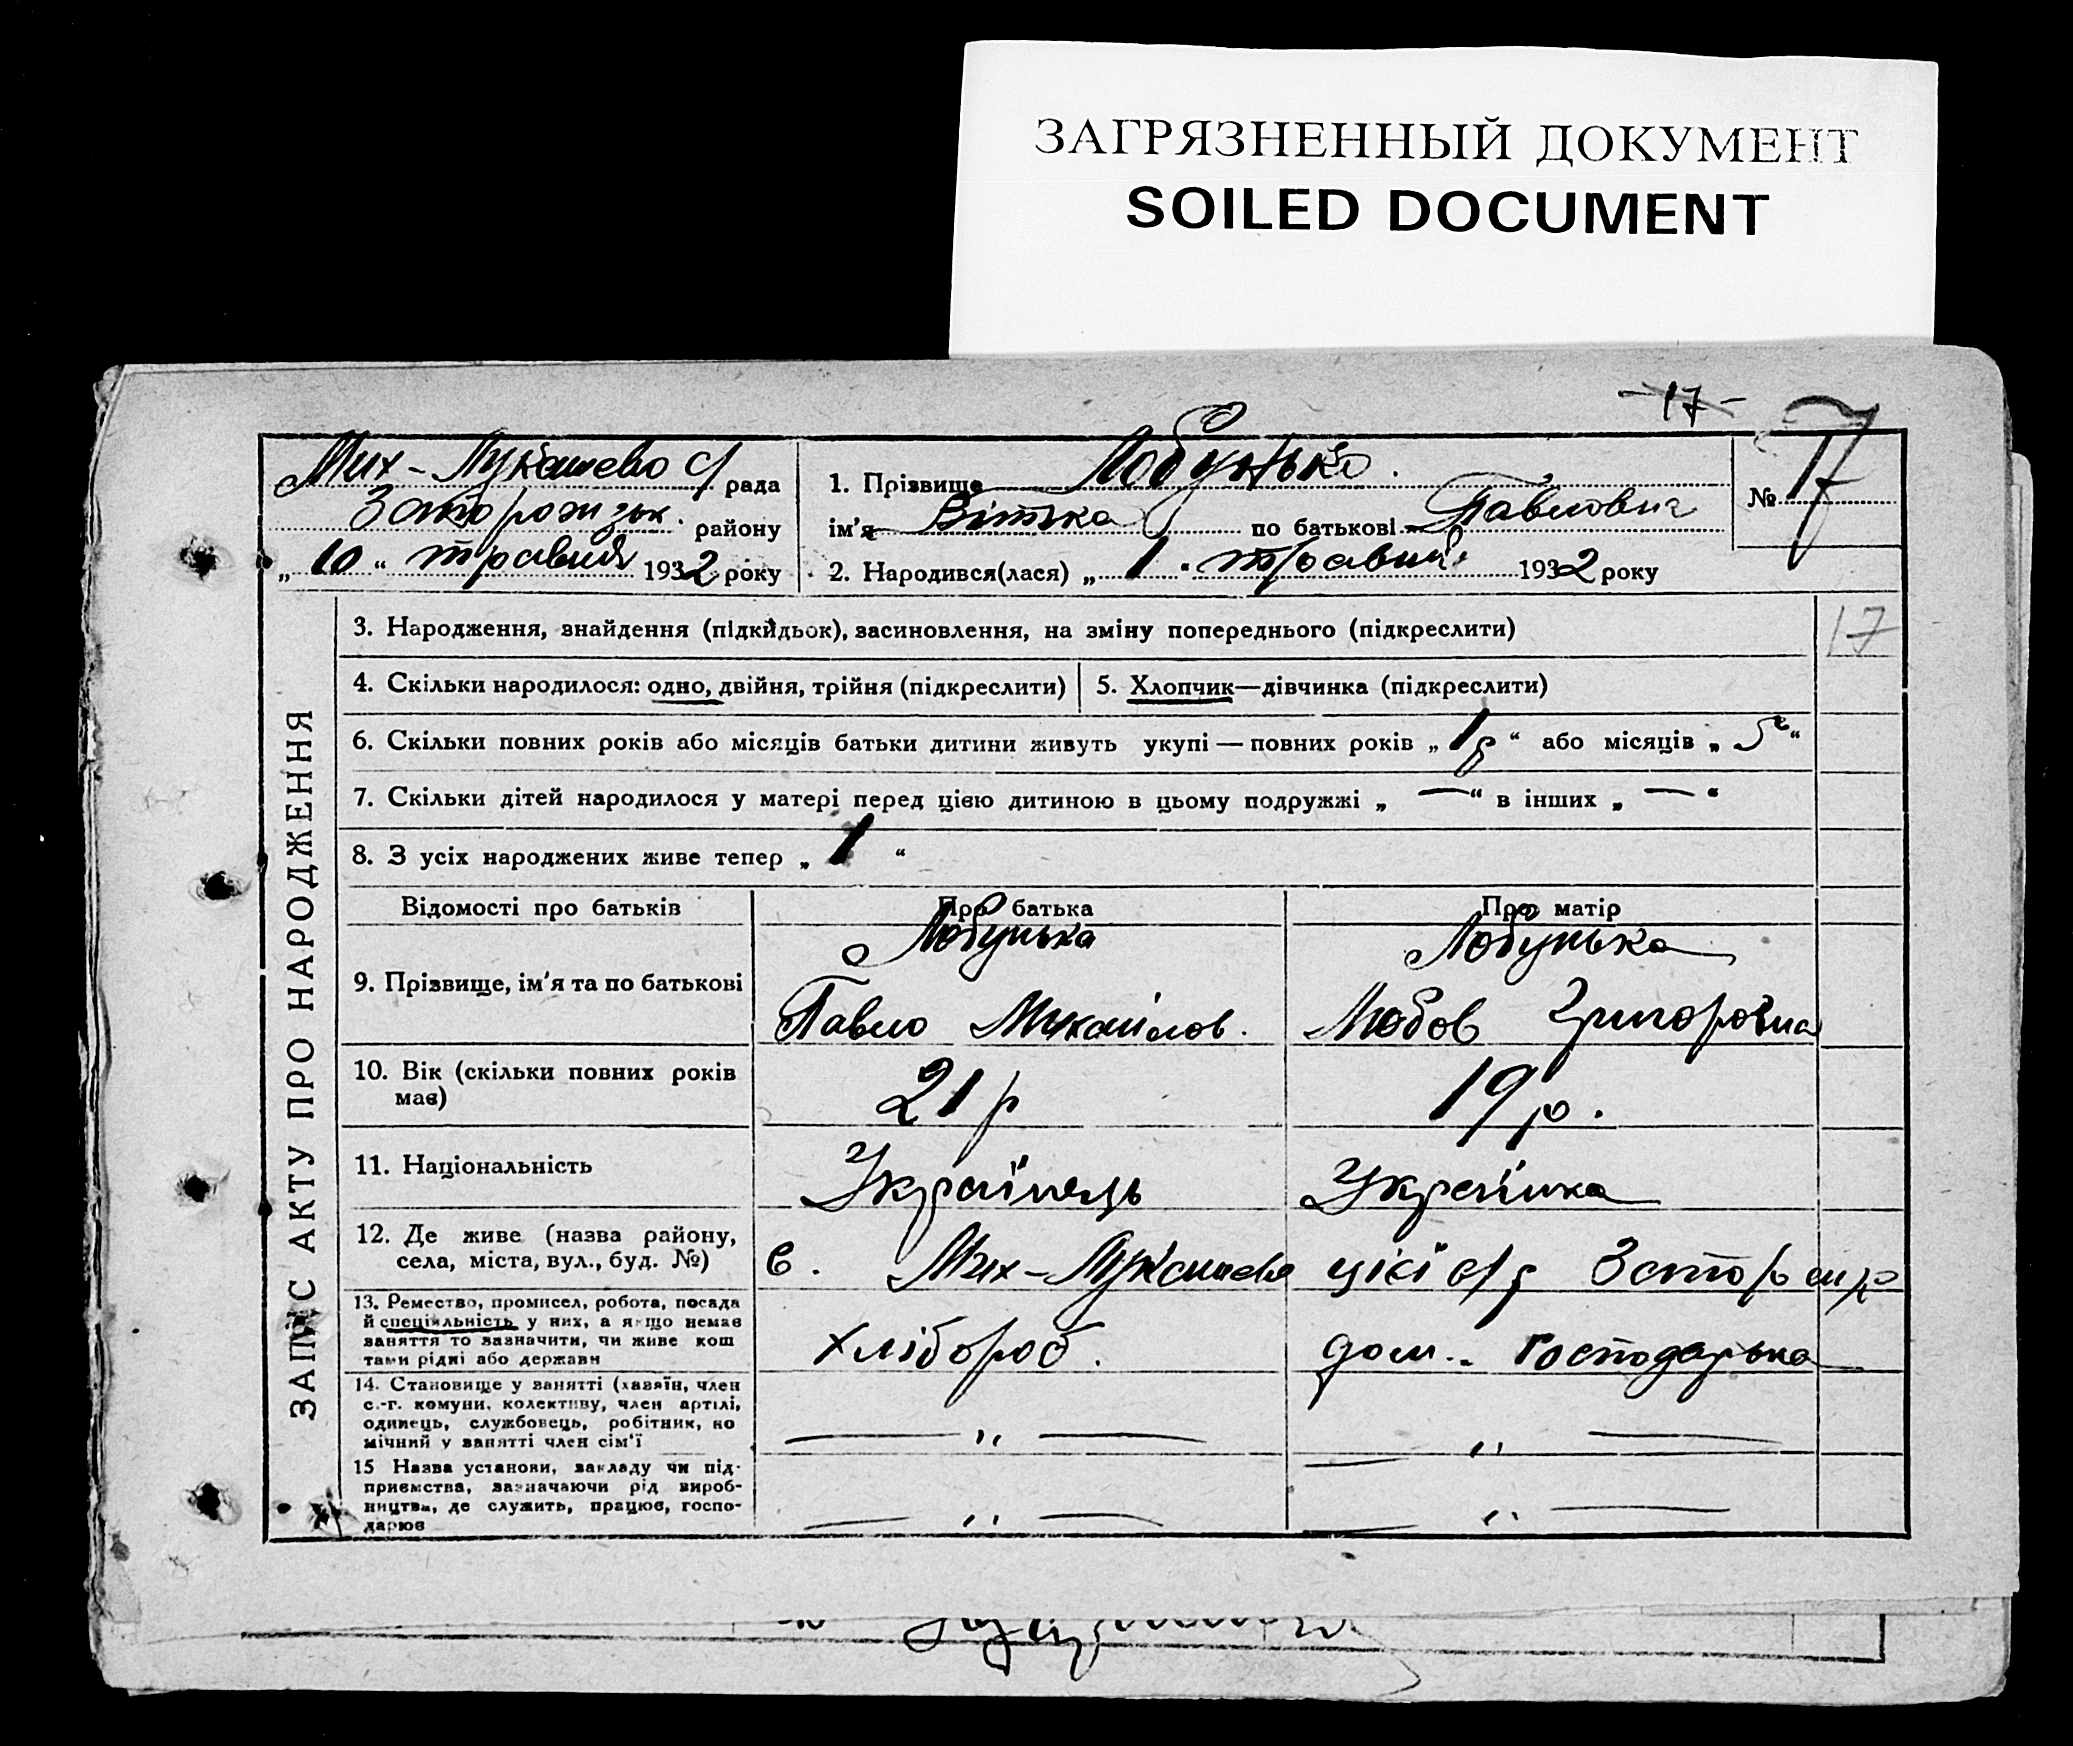 ЗАГРЯЗНЕННЫЙ ДОКУМЕНТ
SOILED DOCUMENT
-17-
Мих-Лукашево с/ рада
Запорожизьк. району
„10“ травня 1932 року
1. Прізвище Лобунько.
ім'я Вітька по батькові Павлович
2. Народився(лася) „1“ травня 1932 року
№ 17
17
ЗАПИС АКТУ ПРО НАРОДЖЕННЯ
3. Народження, знайдення (підкидьок), засиновлення, на зміну попереднього (підкреслити)
4. Скільки народилося: одно, двійня, трійня (підкреслити)
5. Хлопчик—дівчинка (підкреслити)
6. Скільки повних років або місяців батьки дитини живуть укупі — повних років „1р“ або місяців „ “
7. Скільки дітей народилося у матері перед цією дитиною в цьому подружжі „ — “ в інших „ — “
8. З усіх народжених живе тепер „ 1 “
Відомості про батьків
Про батька
Про матір
9. Прізвище, ім'я та по батькові
Лобунька
Павло Михайлов.
Лобунька
Любов Григоровна
10. Вік (скільки повних років
має)
21 р
19 р.
11. Національність
Українець
Українка
12. Де живе (назва району,
села, міста, вул., буд. №)
с. Мих-Лукашево цієї с/р Запор р
13. Ремество, промисел, робота, посада
й спеціяльність у них, а якщо немає
заняття то зазначити, чи живе кош
тами рідні або держави
хлібороб.
дом.. господарька
14. Становище у занятті (хазяїн, член
с.-г. комуни, колективу, член артілі,
одинець, службовець, робітник, по
мічний у занятті член сім'ї
— ,, —
— ,, —
15 Назва установи, закладу чи під-
приємства, зазначаючи рід вироб-
ництва, де служить, працює, госпо-
дарює
— ,, —
— ,, —